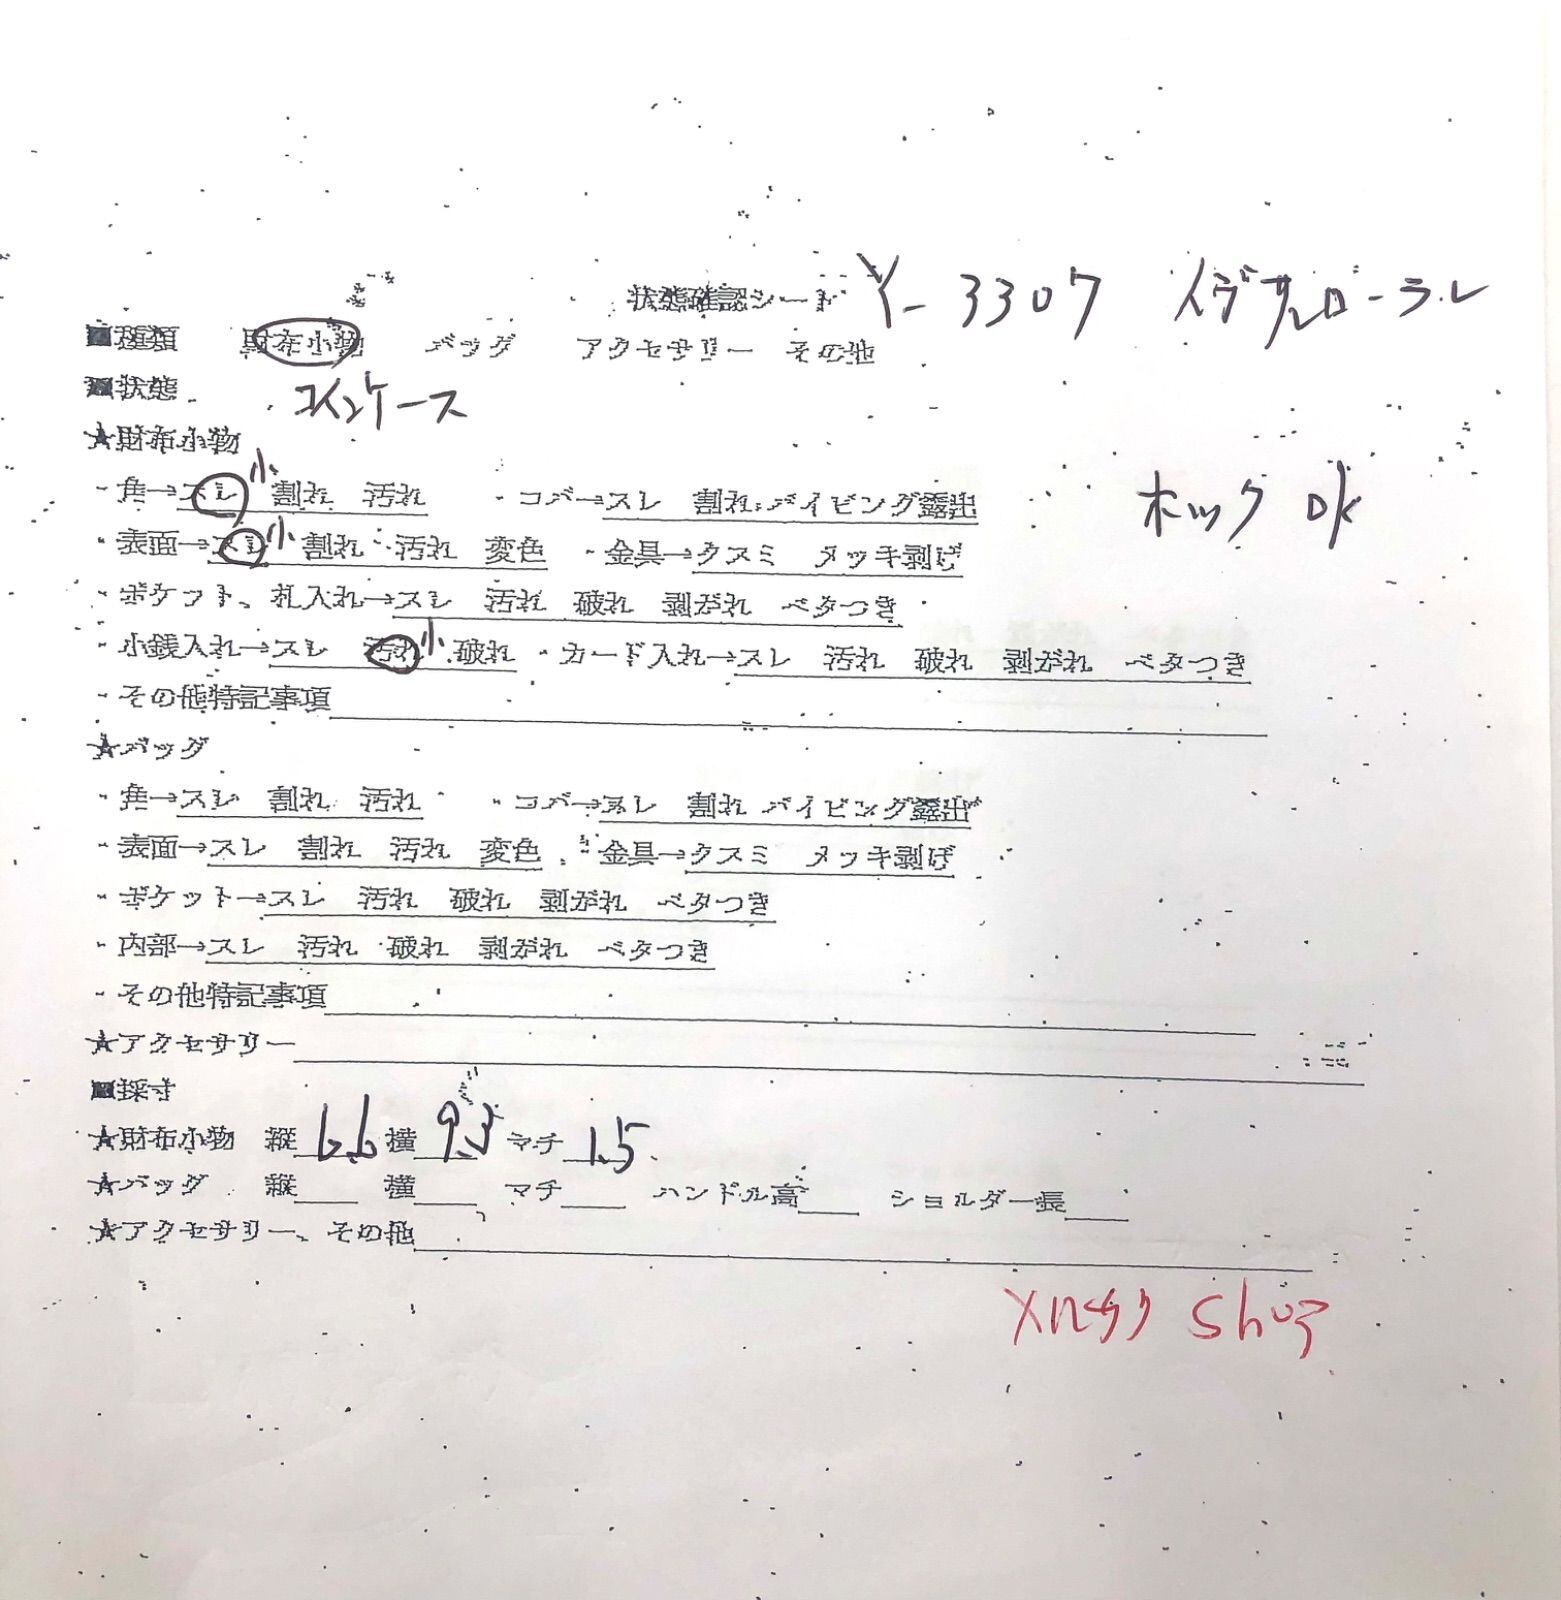 状態確認シート Y-3307 イヴサンローラン
■種類 財布小物 バッグ アクセサリー その他
■状態 コインケース
★財布小物
・角→スレ小 割れ 汚れ ・コバ→スレ 割れ パイピング露出 ホック OK
・表面→スレ小 割れ 汚れ 変色 ・金具→クスミ メッキ剥げ
・ポケット、札入れ→スレ 汚れ 破れ 剥がれ ベタつき
・小銭入れ→スレ 汚れ小 破れ ・カード入れ→スレ 汚れ 破れ 剥がれ ベタつき
・その他特記事項
★バッグ
・角→スレ 割れ 汚れ ・コバ→スレ 割れ パイピング露出
・表面→スレ 割れ 汚れ 変色 ・金具→クスミ メッキ剥げ
・ポケット→スレ 汚れ 破れ 剥がれ ベタつき
・内部→スレ 汚れ 破れ 剥がれ ベタつき
・その他特記事項
★アクセサリー
■採寸
★財布小物 縦 6.6 横 9.3 マチ 1.5
★バッグ 縦 横 マチ ハンドル高 ショルダー長
★アクセサリー、その他